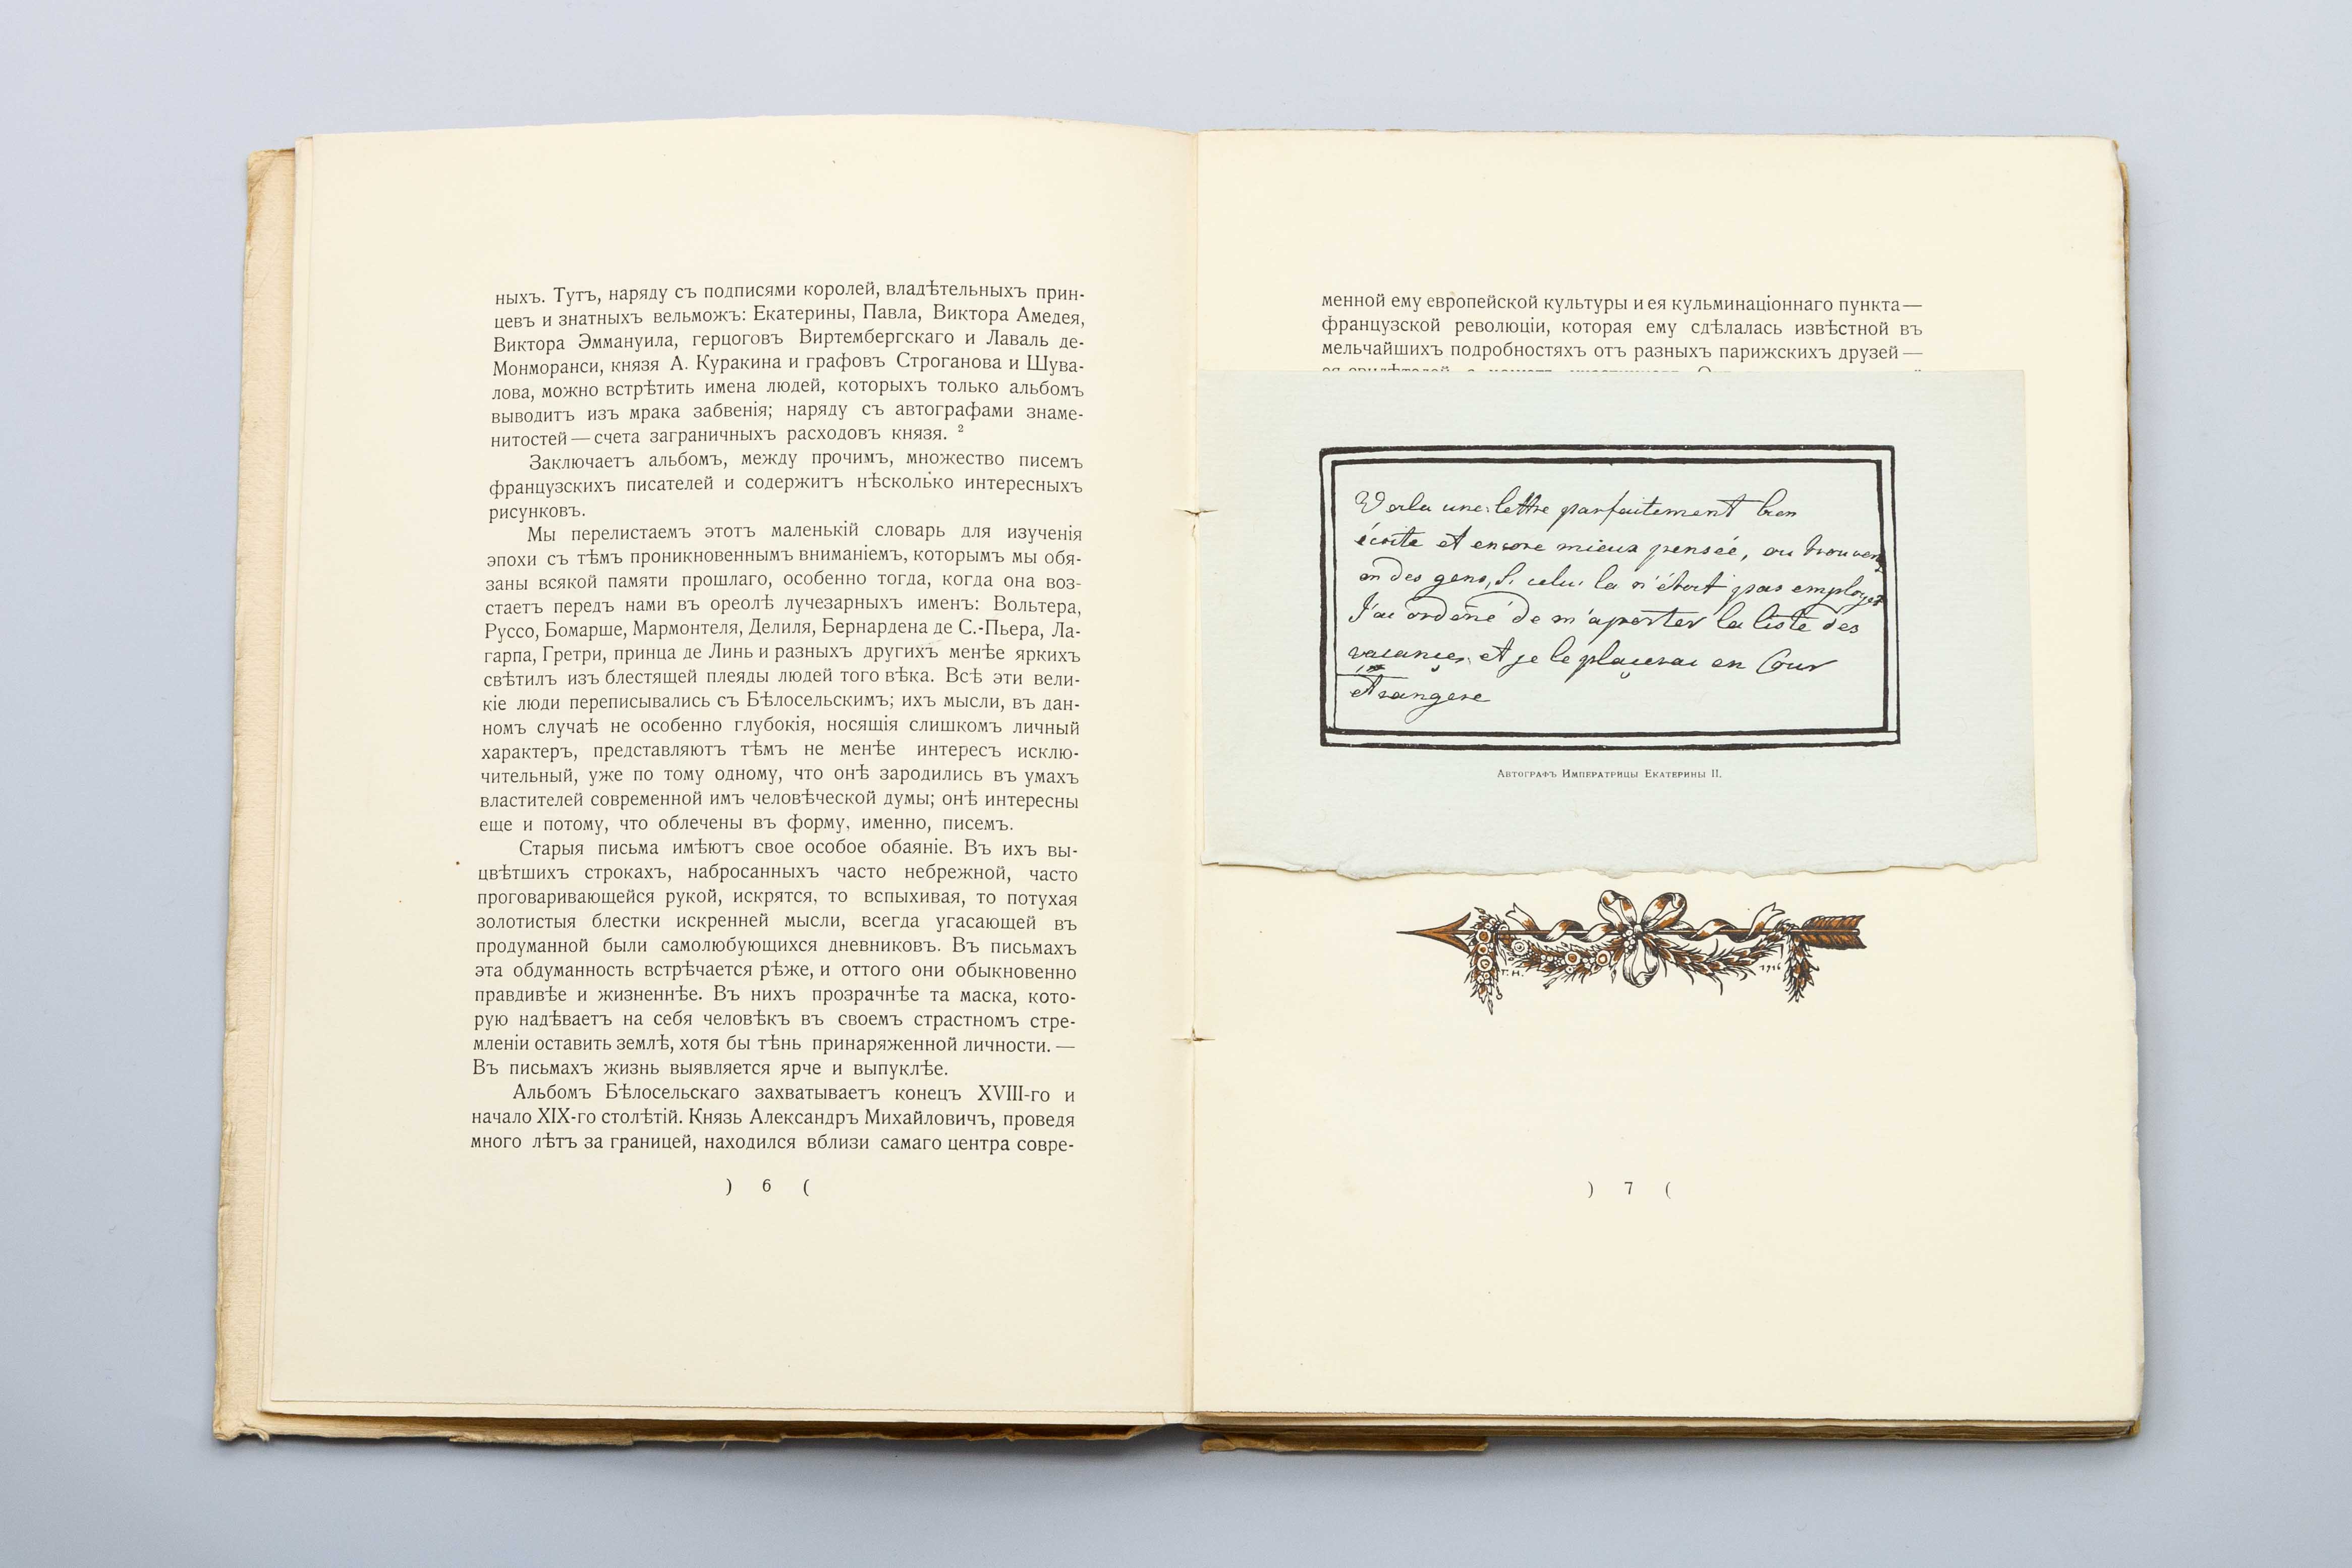 ныхъ. Тутъ, наряду съ подписями королей, владѣтельныхъ прин-
цевъ и знатныхъ вельможъ: Екатерины, Павла, Виктора Амедея,
Виктора Эммануила, герцоговъ Виртембергскаго и Лаваль де-
Монморанси, князя А. Куракина и графовъ Строганова и Шува-
лова, можно встрѣтить имена людей, которыхъ только альбомъ
выводитъ изъ мрака забвенія; наряду съ автографами знаме-
нитостей — счета заграничныхъ расходовъ князя. ²
Заключаетъ альбомъ, между прочимъ, множество писемъ
французскихъ писателей и содержитъ нѣсколько интересныхъ
рисунковъ.
Мы перелистаемъ этотъ маленькій словарь для изученія
эпохи съ тѣмъ проникновеннымъ вниманіемъ, которымъ мы обя-
заны всякой памяти прошлаго, особенно тогда, когда она воз-
стаетъ передъ нами въ ореолѣ лучезарныхъ именъ: Вольтера,
Руссо, Бомарше, Мармонтеля, Делиля, Бернардена де С.-Пьера, Ла-
гарпа, Гретри, принца де Линь и разныхъ другихъ менѣе яркихъ
свѣтилъ изъ блестящей плеяды людей того вѣка. Всѣ эти вели-
кіе люди переписывались съ Бѣлосельскимъ; ихъ мысли, въ дан-
номъ случаѣ не особенно глубокія, носящія слишкомъ личный
характеръ, представляютъ тѣмъ не менѣе интересъ исклю-
чительный, уже по тому одному, что онѣ зародились въ умахъ
властителей современной имъ человѣческой думы; онѣ интересны
еще и потому, что облечены въ форму, именно, писемъ.
Старыя письма имѣютъ свое особое обаяніе. Въ ихъ вы-
цвѣтшихъ строкахъ, набросанныхъ часто небрежной, часто
проговаривающейся рукой, искрятся, то вспыхивая, то потухая
золотистыя блестки искренней мысли, всегда угасающей въ
продуманной были самолюбующихся дневниковъ. Въ письмахъ
эта обдуманность встрѣчается рѣже, и оттого они обыкновенно
правдивѣе и жизненнѣе. Въ нихъ прозрачнѣе та маска, кото-
рую надѣваетъ на себя человѣкъ въ своемъ страстномъ стре-
мленіи оставить землѣ, хотя бы тѣнь принаряженной личности. —
Въ письмахъ жизнь выявляется ярче и выпуклѣе.
Альбомъ Бѣлосельскаго захватываетъ конецъ XVIII-го и
начало XIX-го столѣтій. Князь Александръ Михайловичъ, проведя
много лѣтъ за границей, находился вблизи самаго центра совре-
) 6 (
менной ему европейской культуры и ея кульминаціоннаго пункта —
французской революціи, которая ему сдѣлалась извѣстной въ
мельчайшихъ подробностяхъ отъ разныхъ парижскихъ друзей —
Voila une lettre parfaitement bien
écrite et encore mieux pensée, ou trouverez
on des gens, si celui la n'étoit pas employé
J'ai ordoné de m'aporter la liste des
vacances et je le placerai en Cour
etrangere
Автографъ Императрицы Екатерины II.
Г.Н. 1916
) 7 (